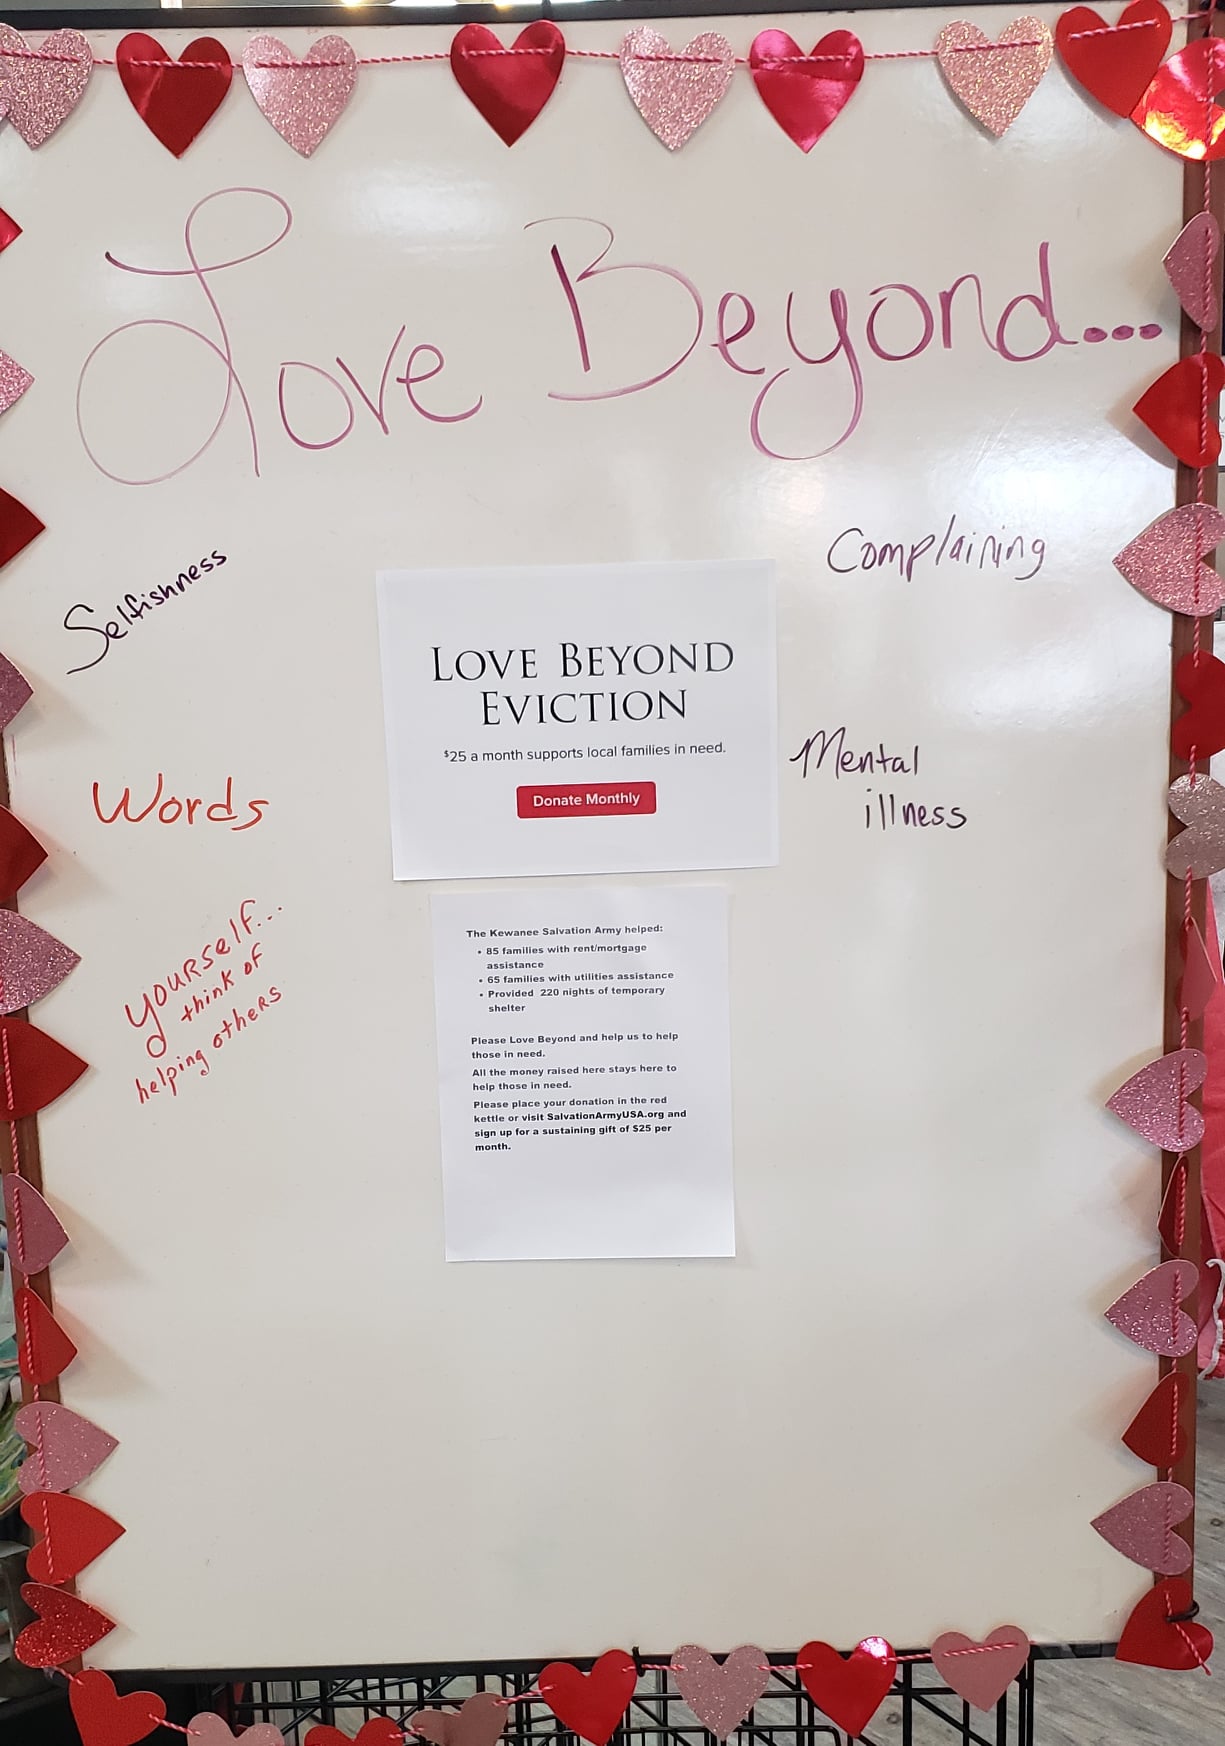 Love Beyond...
Selfishness
Complaining
LOVE BEYOND
EVICTION
$25 a month supports local families in need.
Donate Monthly
Words
Mental
illness
yourself...
think of
helping others
The Kewanee Salvation Army helped:
• 85 families with rent/mortgage
assistance
• 65 families with utilities assistance
• Provided 220 nights of temporary
shelter
Please Love Beyond and help us to help
those in need.
All the money raised here stays here to
help those in need.
Please place your donation in the red
kettle or visit SalvationArmyUSA.org and
sign up for a sustaining gift of $25 per
month.